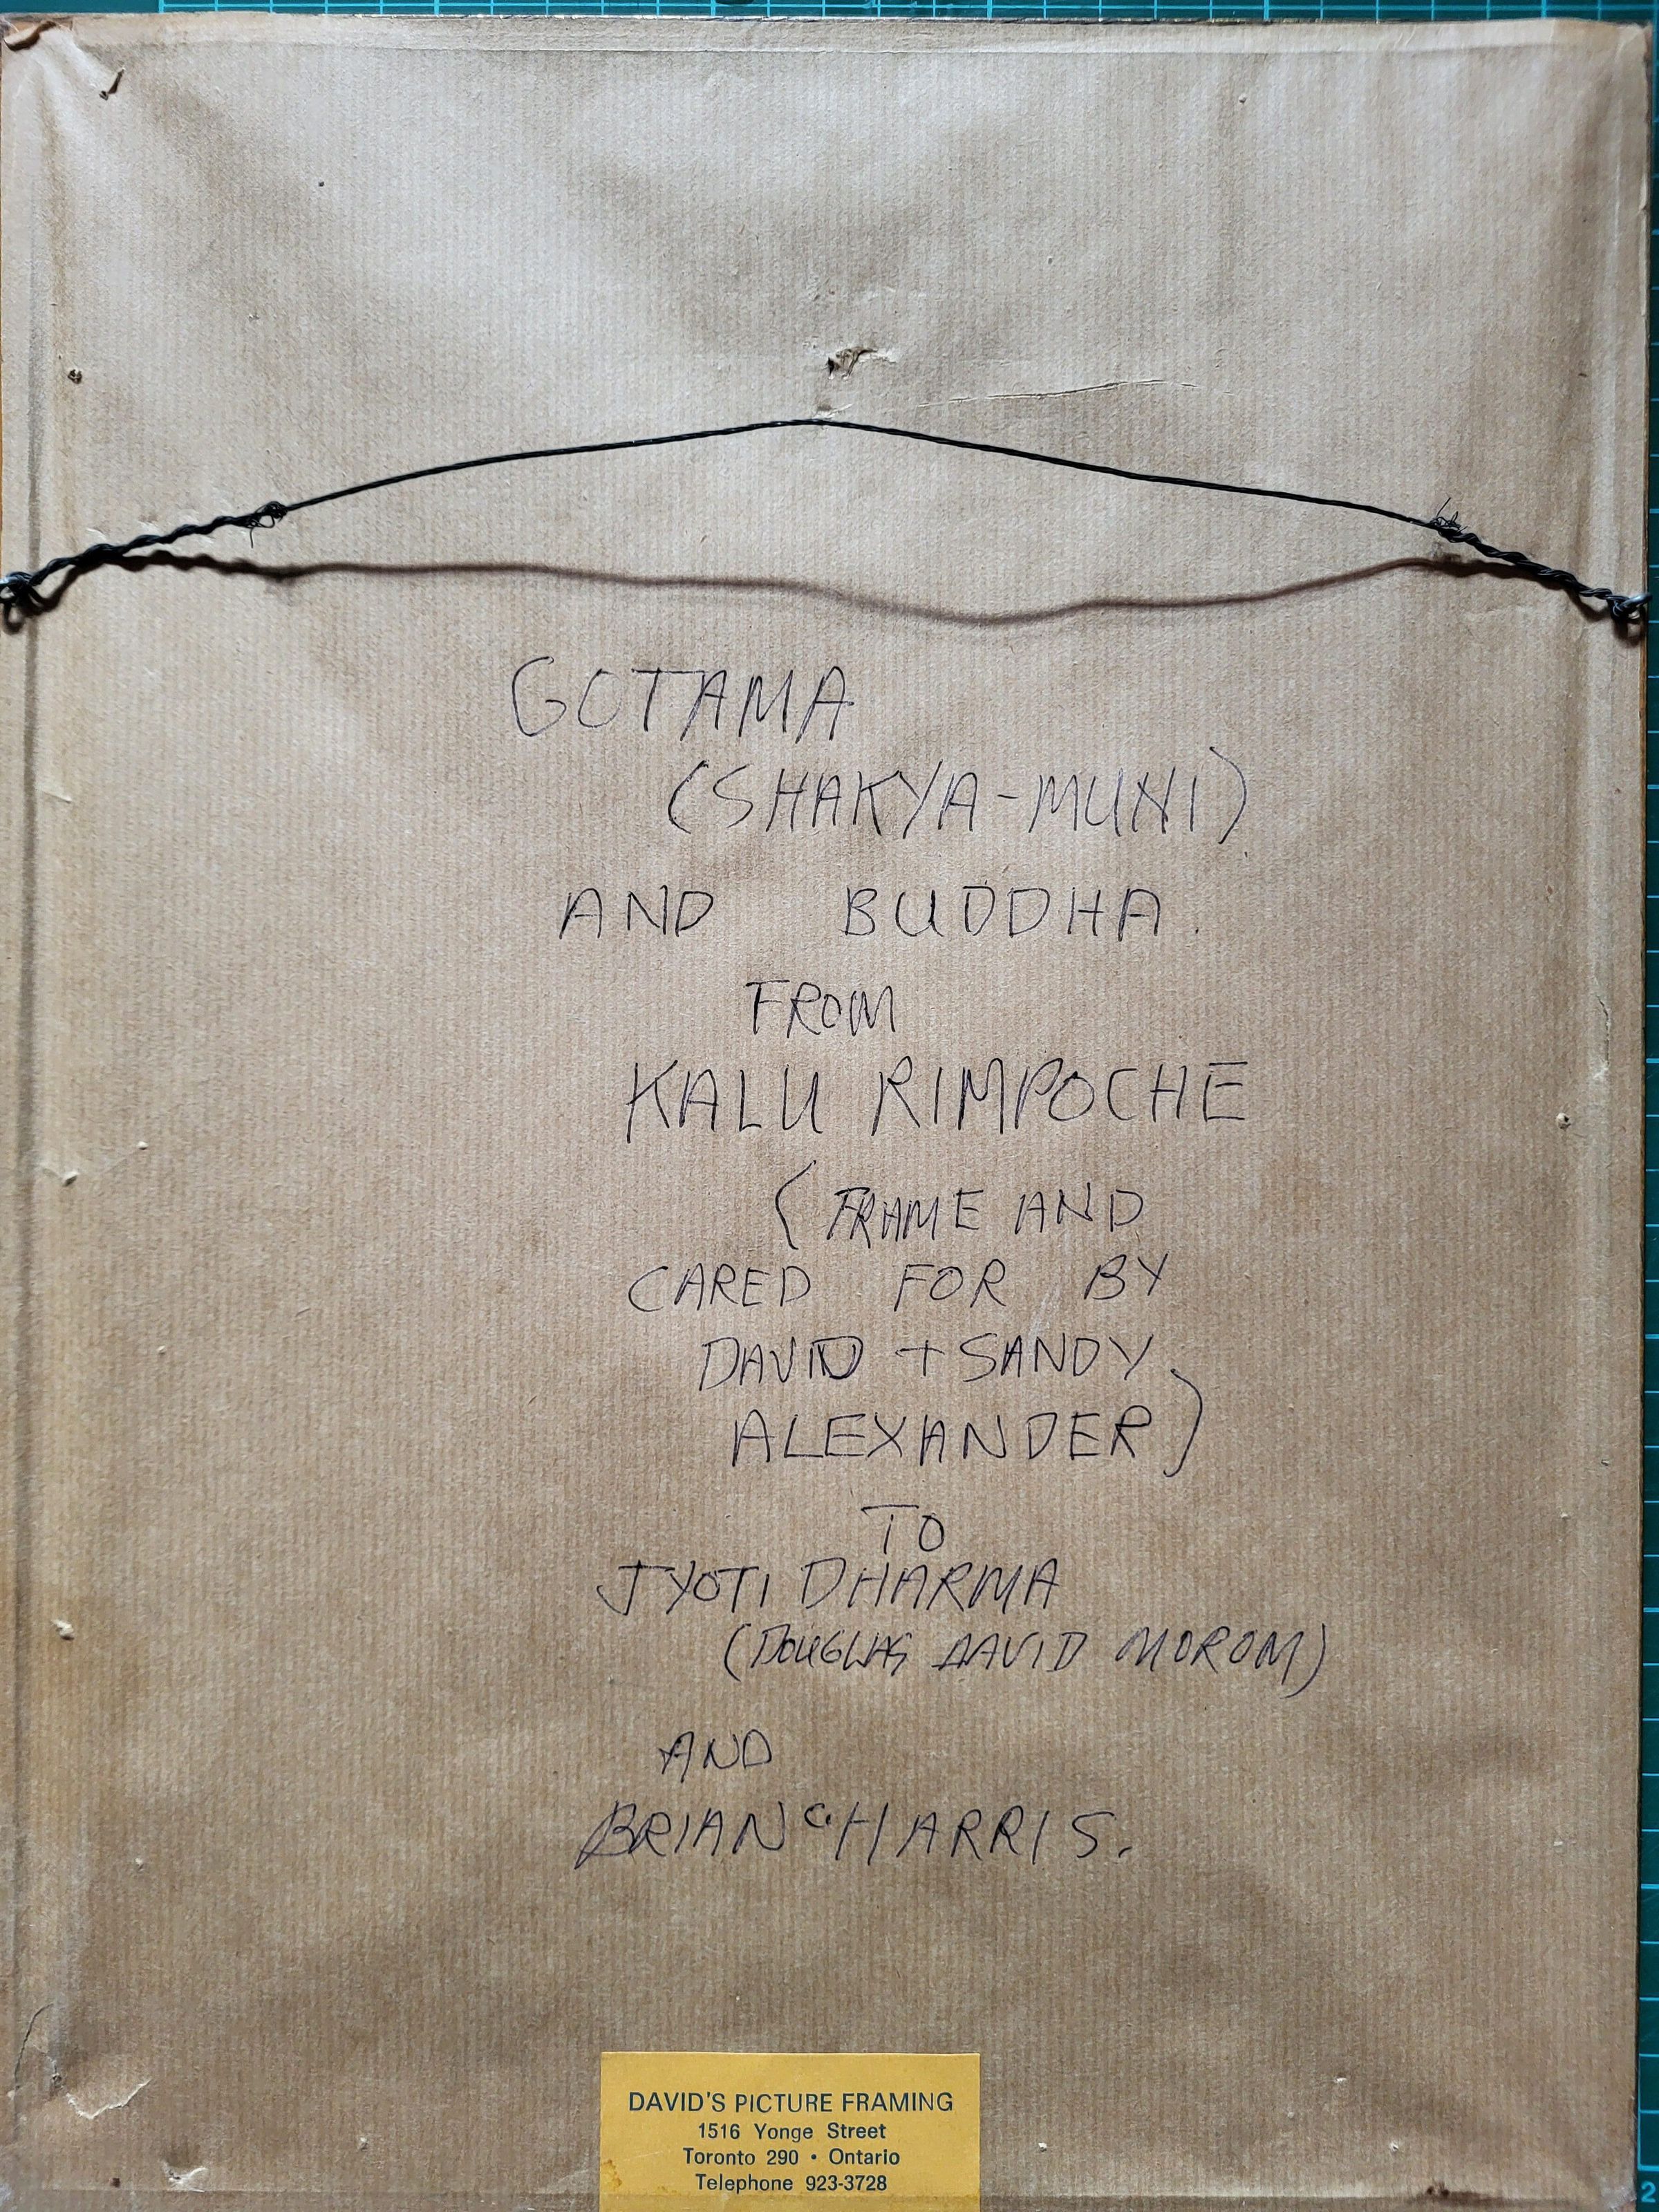 GOTAMA
(SHAKYA-MUNI)
AND BUDDHA.
FROM
KALU RIMPOCHE
(FRAME AND
CARED FOR BY
DAVID + SANDY
ALEXANDER)
TO
JYOTI DHARMA
(DOUGLAS DAVID MOROM)
AND
BRIAN C. HARRIS.
DAVID'S PICTURE FRAMING
1516 Yonge Street
Toronto 290 • Ontario
Telephone 923-3728
2